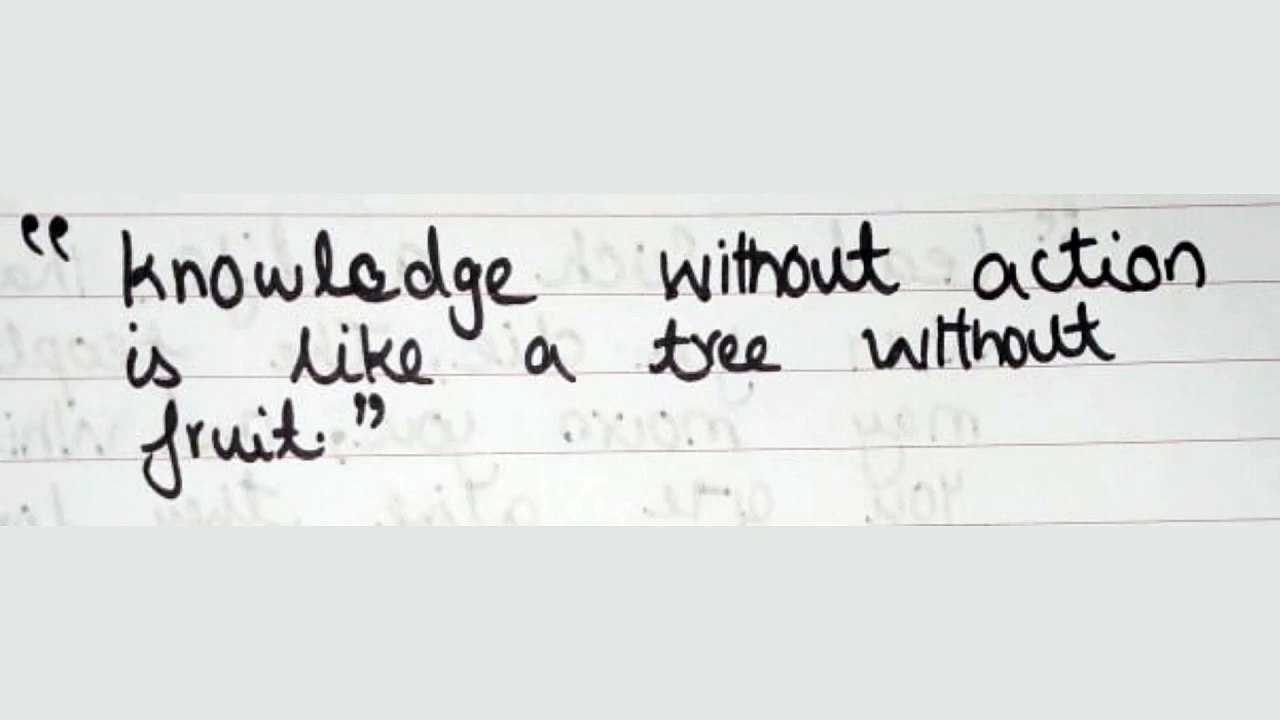 “ knowledge without action
is like a tree without
fruit.”